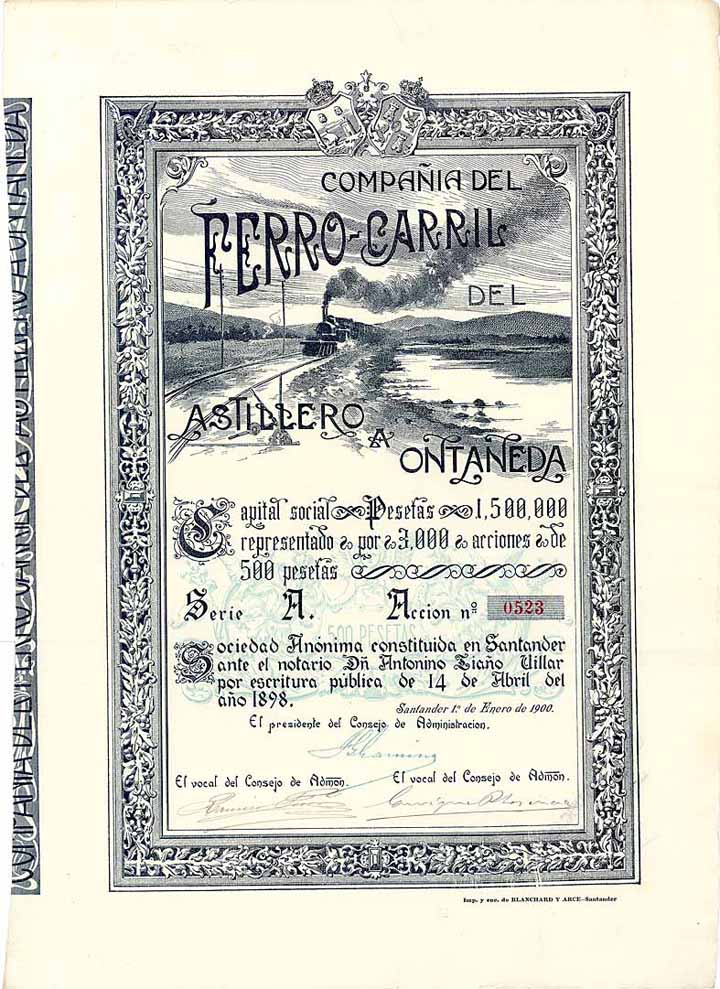 COMPAÑIA DEL
FERRO-CARRIL
DEL
ASTILLERO
A
ONTAÑEDA
Capital social Pesetas 1,500,000
representado por 3,000 acciones de
500 pesetas
Serie A. Accion nº 0523
500 PESETAS
Sociedad Anónima constituida en Santander
ante el notario Dn Antonino Ziaño Villar
por escritura pública de 14 de Abril del
año 1898.
Santander 1º de Enero de 1900.
El presidente del Consejo de Administracion.
El vocal del Consejo de Admón. El vocal del Consejo de Admón.
Imp. y enc. de BLANCHARD Y ARCE-Santander
COMPAÑIA DEL FERRO-CARRIL DEL ASTILLERO A ONTAÑEDA